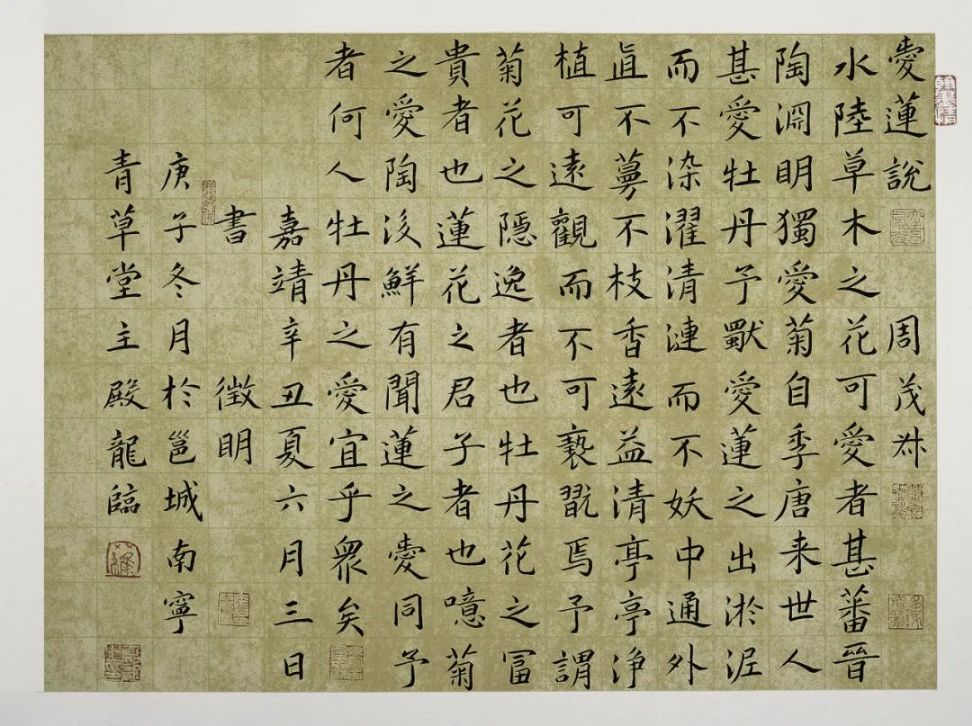 愛蓮說 周茂叔
水陸草木之花可愛者甚蕃晉
陶淵明獨愛菊自李唐来世人
甚愛牡丹予獨愛蓮之出淤泥
而不染濯清漣而不妖中通外
直不蔓不枝香遠益清亭亭浄
植可遠觀而不可褻翫焉予謂
菊花之隱逸者也牡丹花之冨
貴者也蓮花之君子者也噫菊
之愛陶後鮮有聞蓮之愛同予
者何人牡丹之愛宜乎衆矣
嘉靖辛丑夏六月三日
書 徵明
庚子冬月於邕城南寧
青草堂主殿龍臨